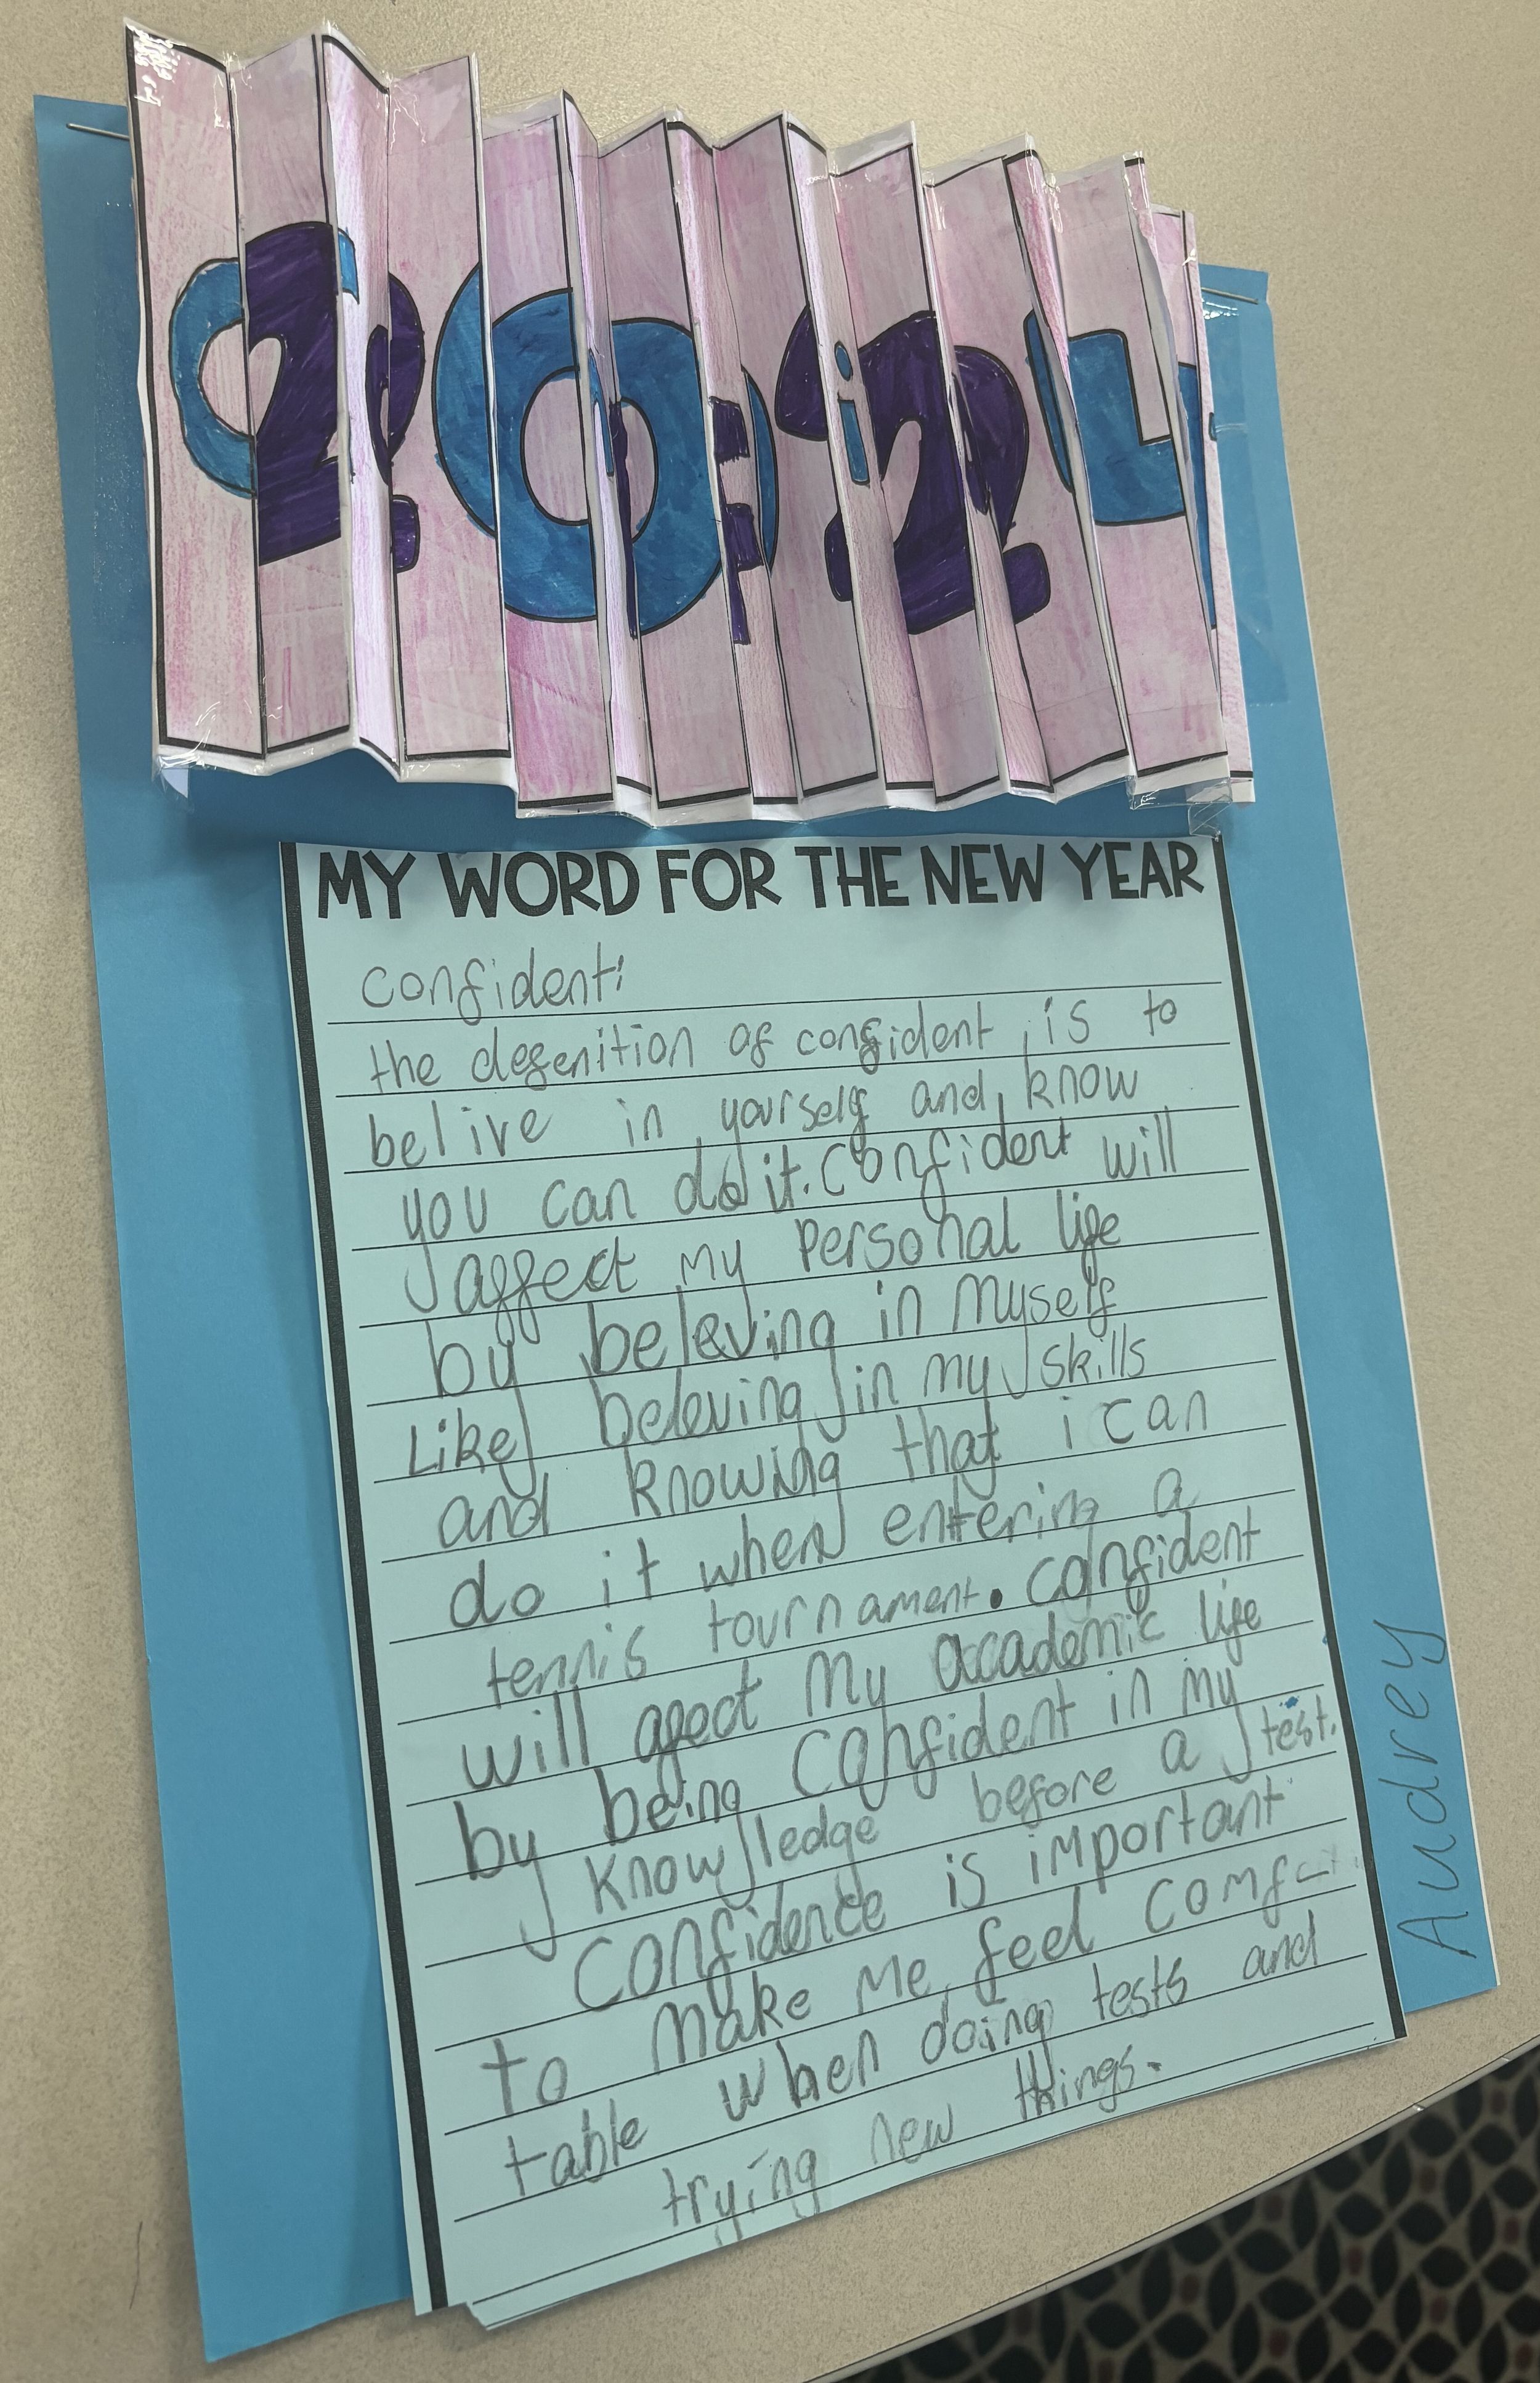 2024
MY WORD FOR THE NEW YEAR
confident:
the defenition of confident is to
belive in yourself and know
you can do it. Confident will
affect my personal life
by beleving in myself
Like beleving in my skills
and knowing that i can
do it when entering a
tennis tournament. confident
will afect my academic life
by being confident in my
knowledge before a test.
confidence is important
to make me feel comf
table when doing tests and
trying new things.
Audrey